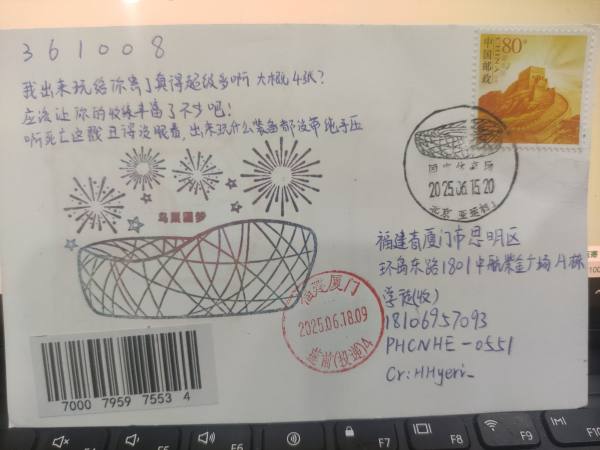 361008
我出来玩给你寄了真得超级多啊 大概4纸?
应该让你的收集丰富了不少吧!
啊死亡这戳 丑得没眼看,出来玩什么装备都没带 地手压
80分
中国邮政
CHINA
鸟巢圆梦
2025.06.15.20
北京
福建厦门
2025.06.18.09
(投递)
福建省厦门市思明区
环岛东路1801中航紫金广场A栋
(收)
18106957093
PHCNHE-0551
Cr:HHyeri_
7000 7959 7553 4
F5
F6
F7
F8
F9
F10